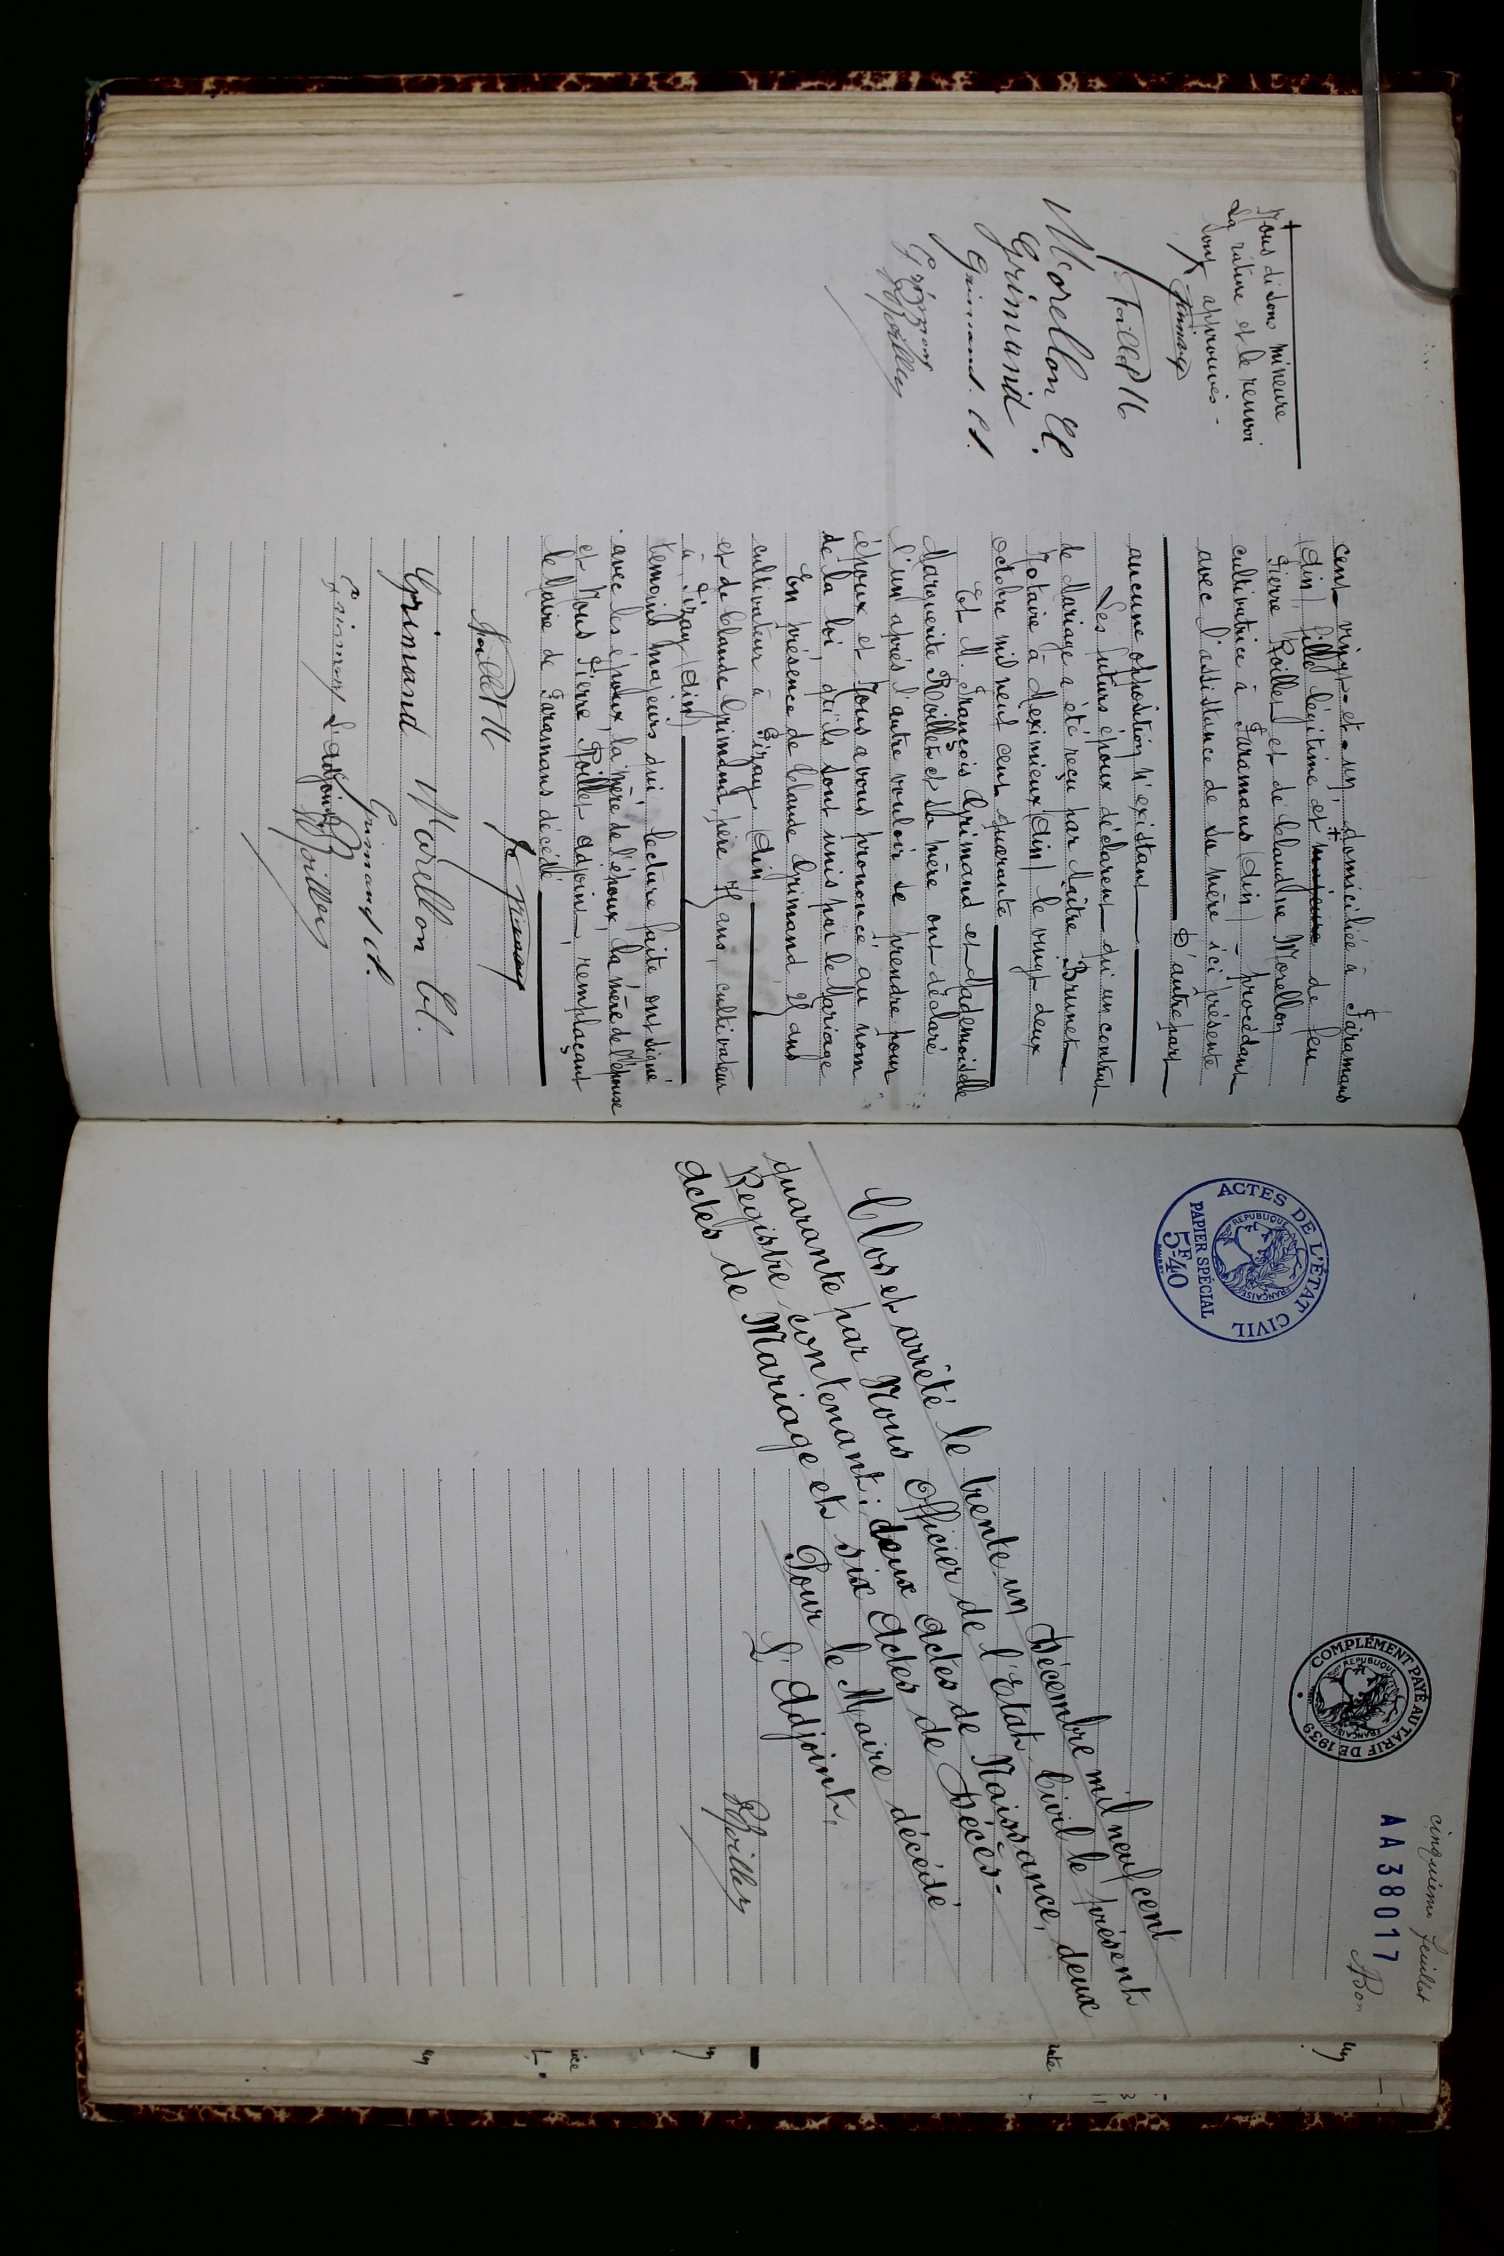 +
Nous disons mineure
La rature et le renvoi
sont approuvés -
Morellon Cl.
Grimand
Grimand. Cl.
cent vingt-et-un, domiciliée à Faramans
(Ain) fille légitime et majeure + de feu
Pierre Roillet et de Claudine Morellon
cultivatrice à Faramans (Ain) - procédant
avec l'assistance de sa mère ici présente
D'autre part
aucune opposition n'existant
Les futurs époux déclarent qu'un contrat
de Mariage a été reçu par Maître Brunet
Notaire à Meximieux (Ain) le vingt deux
octobre mil neuf cent quarante
Et M. François Grimand et Mademoiselle
Marguerite Roillet et sa mère ont déclaré
l'un après l'autre vouloir se prendre pour
époux et Nous avons prononcé au nom
de la loi, qu'ils sont unis par le Mariage
En présence de Claude Grimand ans
cultivateur à Pizay (Ain)
et de Claude Grimand, père ans, cultivateur
à Pizay (Ain)
temoins majeurs qui, lecture faite ont signé
avec les époux, la mère de l'époux, la mère de l'épouse
et Nous Pierre Roillet adjoint, remplaçant
le Maire de Faramans décédé
Grimand Morellon Cl.
Grimand Cl.
L'adjoint Roillet
cinquième feuillet
AA38017
COMPLÉMENT PAYÉ AU TARIF DE 1939
REPUBLIQUE FRANÇAISE
ACTES DE L'ÉTAT CIVIL
REPUBLIQUE FRANÇAISE
PAPIER SPÉCIAL
5F40
Clos et arrêté le trente un Décembre mil neuf cent
quarante par Nous Officier de l'Etat Civil le présent
Registre contenant: deux actes de Naissance, deux
Actes de Mariage et six Actes de Décès-
Pour le Maire décédé
L'Adjoint,
Roillet